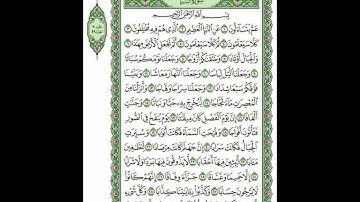 سُورَةُ النَّبَإِ
بِسْمِ اللَّهِ الرَّحْمَٰنِ الرَّحِيمِ
عَمَّ يَتَسَاءَلُونَ ١ عَنِ النَّبَإِ الْعَظِيمِ ٢ الَّذِي هُمْ فِيهِ مُخْتَلِفُونَ ٣
كَلَّا سَيَعْلَمُونَ ٤ ثُمَّ كَلَّا سَيَعْلَمُونَ ٥ أَلَمْ نَجْعَلِ الْأَرْضَ مِهَادًا ٦
وَالْجِبَالَ أَوْتَادًا ٧ وَخَلَقْنَاكُمْ أَزْوَاجًا ٨ وَجَعَلْنَا نَوْمَكُمْ سُبَاتًا ٩
وَجَعَلْنَا اللَّيْلَ لِبَاسًا ١٠ وَجَعَلْنَا النَّهَارَ مَعَاشًا ١١ وَبَنَيْنَا
فَوْقَكُمْ سَبْعًا شِدَادًا ١٢ وَجَعَلْنَا سِرَاجًا وَهَّاجًا ١٣ وَأَنْزَلْنَا مِنَ
الْمُعْصِرَاتِ مَاءً ثَجَّاجًا ١٤ لِنُخْرِجَ بِهِ حَبًّا وَنَبَاتًا ١٥ وَجَنَّاتٍ
أَلْفَافًا ١٦ إِنَّ يَوْمَ الْفَصْلِ كَانَ مِيقَاتًا ١٧ يَوْمَ يُنْفَخُ فِي الصُّورِ
فَتَأْتُونَ أَفْوَاجًا ١٨ وَفُتِحَتِ السَّمَاءُ فَكَانَتْ أَبْوَابًا ١٩ وَسُيِّرَتِ
الْجِبَالُ فَكَانَتْ سَرَابًا ٢٠ إِنَّ جَهَنَّمَ كَانَتْ مِرْصَادًا ٢١ لِلطَّاغِينَ
مَآبًا ٢٢ لَابِثِينَ فِيهَا أَحْقَابًا ٢٣ لَا يَذُوقُونَ فِيهَا بَرْدًا وَلَا شَرَابًا
٢٤ إِلَّا حَمِيمًا وَغَسَّاقًا ٢٥ جَزَاءً وِفَاقًا ٢٦ إِنَّهُمْ كَانُوا
لَا يَرْجُونَ حِسَابًا ٢٧ وَكَذَّبُوا بِآيَاتِنَا كِذَّابًا ٢٨ وَكُلَّ شَيْءٍ